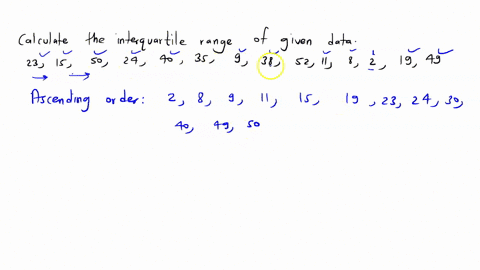 Calculate the interquartile range of given data.
23, 15, 50, 24, 40, 35, 9, 38, 52, 11, 8, 2, 19, 49
Ascending order: 2, 8, 9, 11, 15, 19, 23, 24, 30,
40, 49, 50